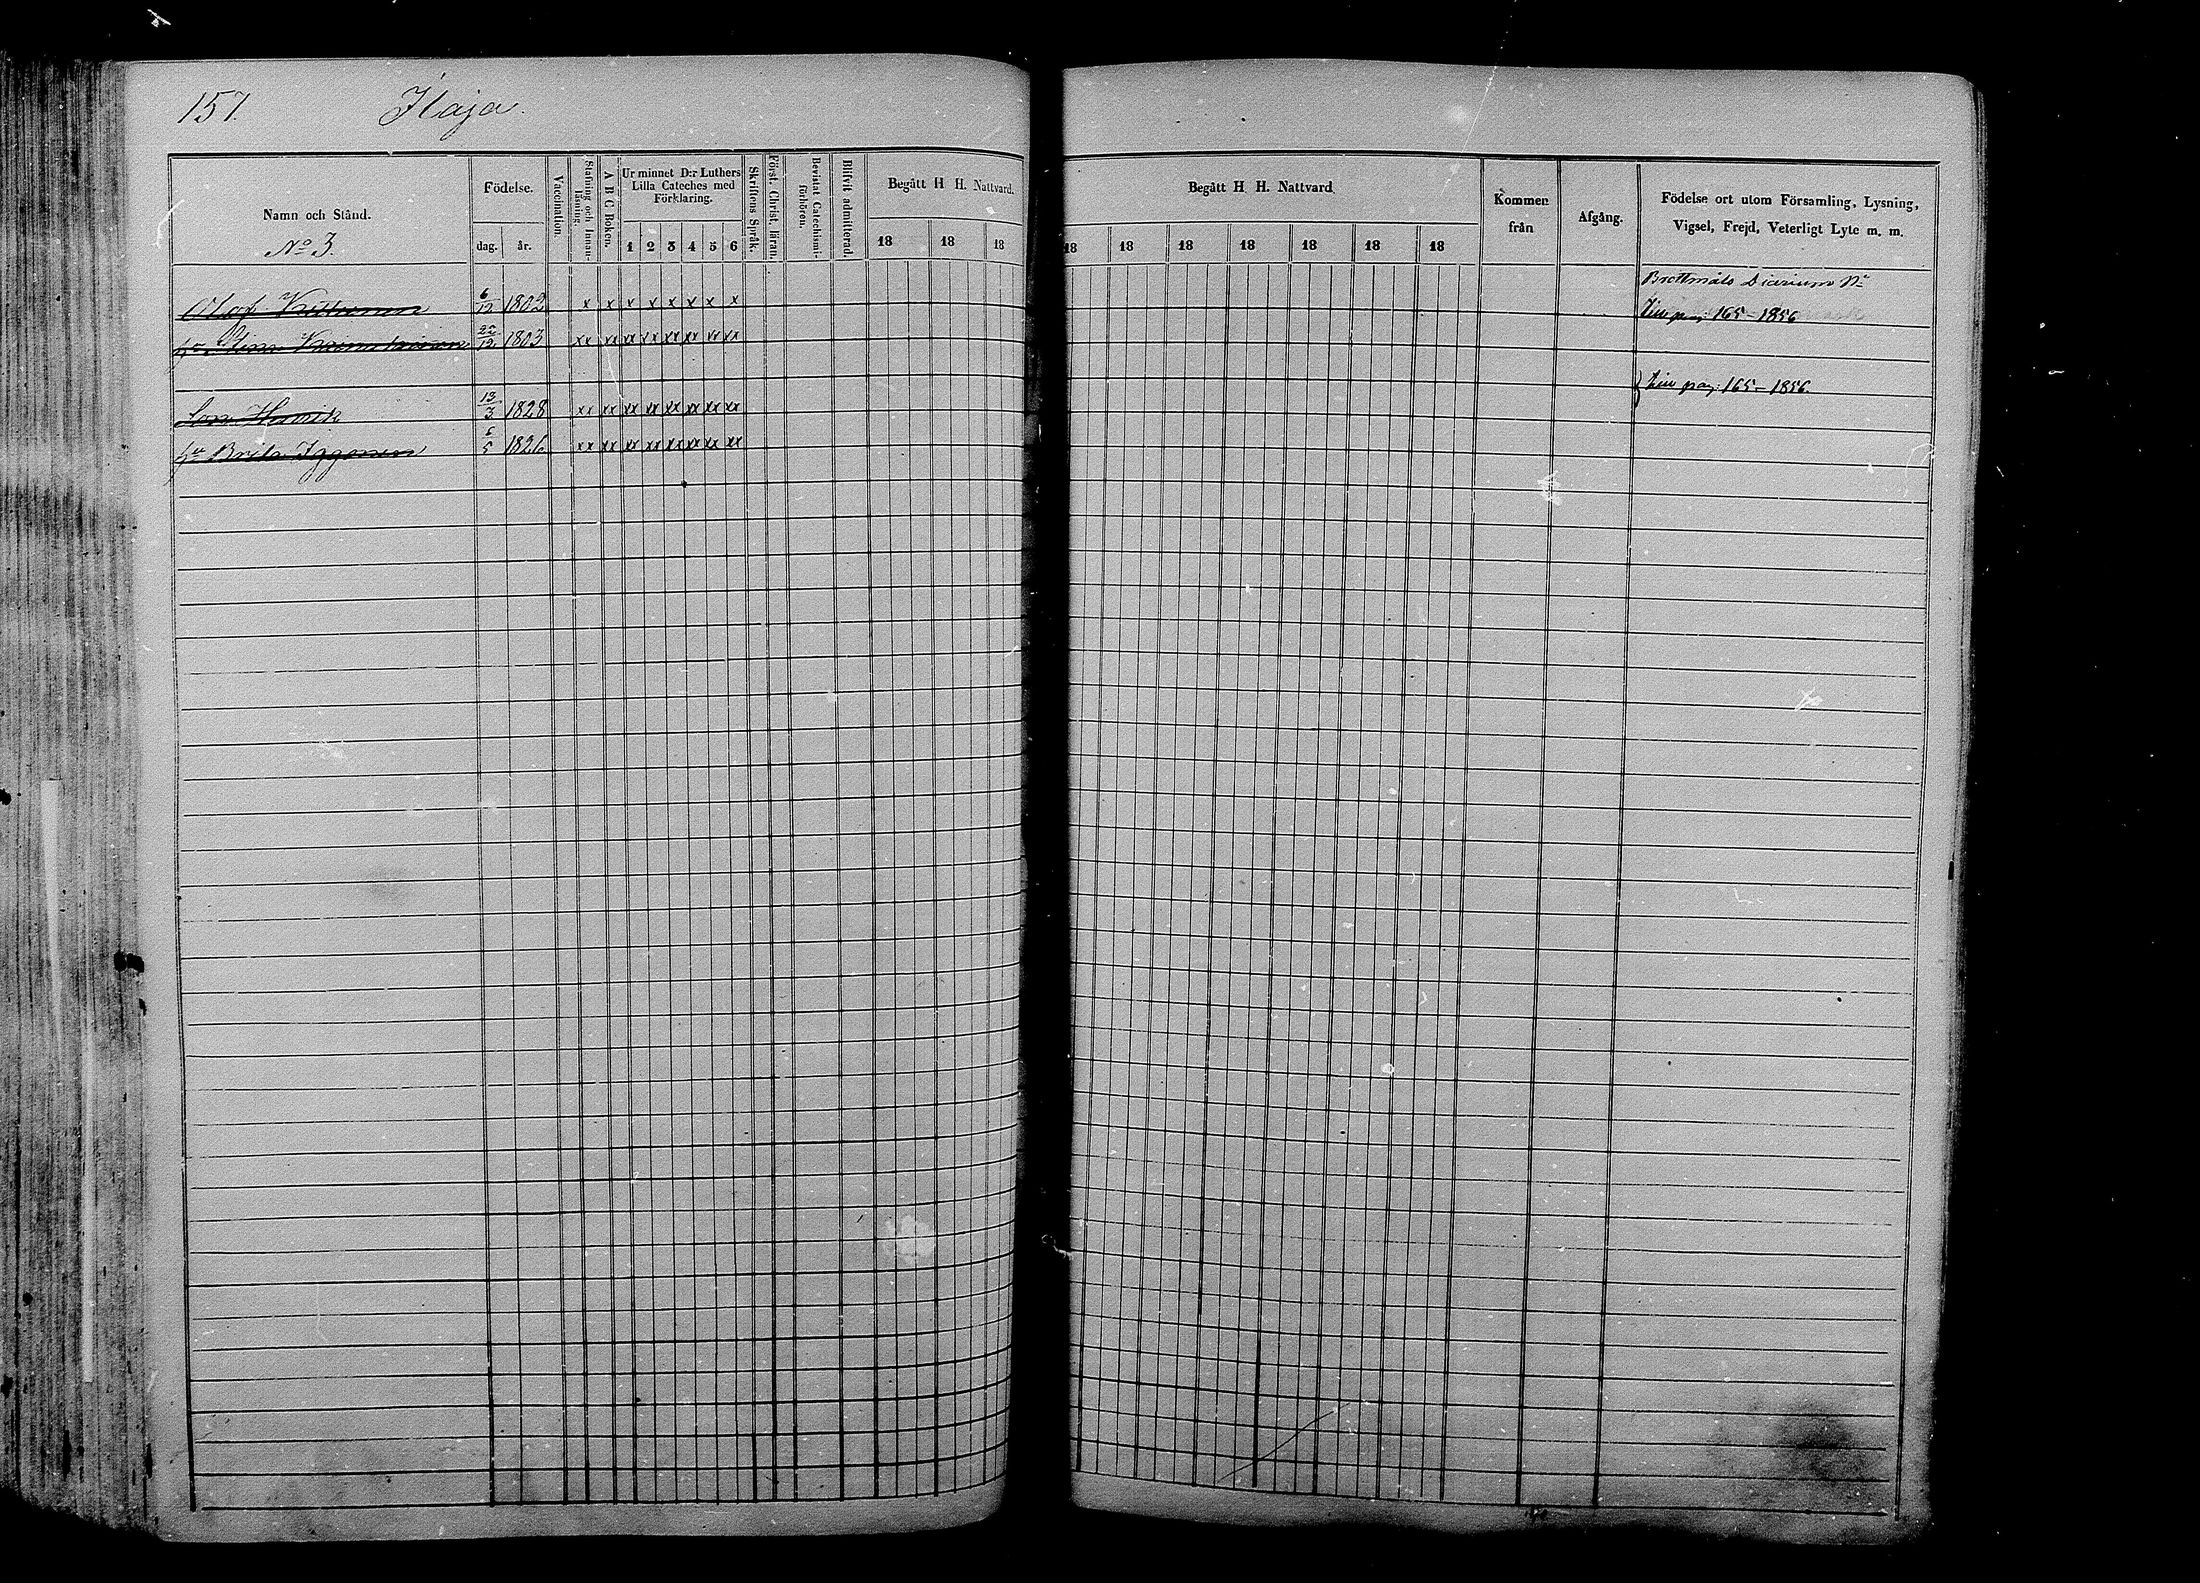 157. Ilaja.
Namn och Stånd.
No 3.
Födelse.
dag. år.
Vaccination.
Stafning och Innanläsning.
A B C Boken.
Ur minnet D:r Luthers
Lilla Cateches med
Förklaring.
1 2 3 4 5 6
Skriftens Språk.
Först. Christ. läran.
Bevistat Catechismiförhören.
Blifvit admitterad.
Begått H H. Nattvard.
18 18 18
Begått H H. Nattvard
18 18 18 18 18 18 18
Kommen
från
Afgång.
Födelse ort utom Församling, Lysning,
Vigsel, Frejd, Veterligt Lyte m. m.
Brottmåls Diarium No
Olof 6/12 1802 x x x x x x x x
165-1856
hu Stina 22/12 1803 xx xx xx xx xx xx xx xx
pag: 165-1856.
Son Henrik 13/3 1828 xx xx xx xx xx xx xx xx
hu Brita 6/5 1826 xx xx xx xx xx xx xx xx